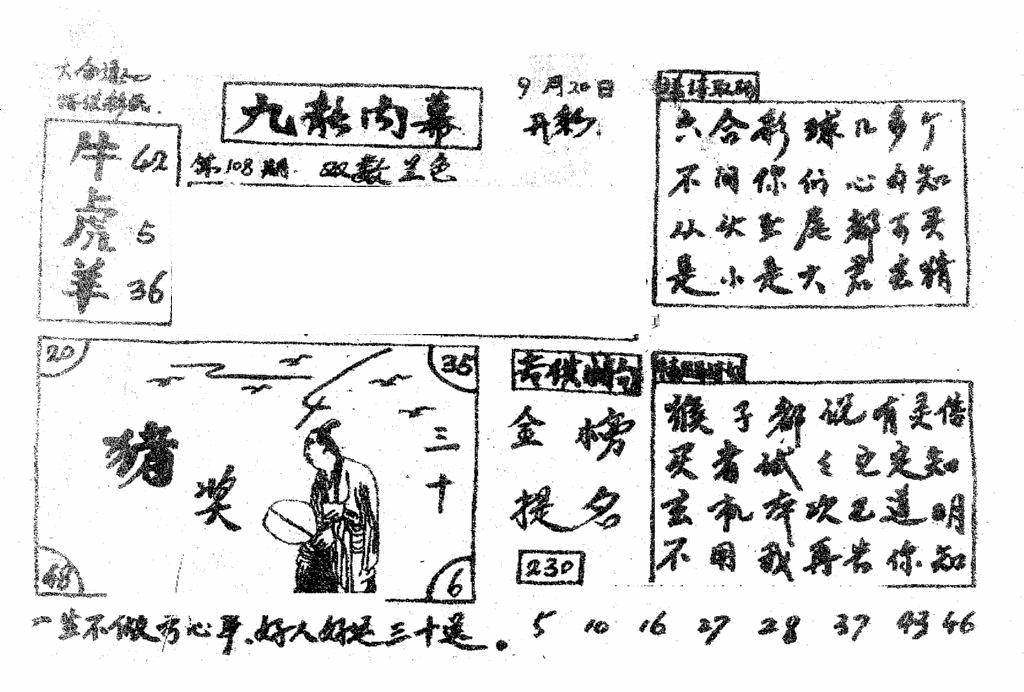 牛 42
虎 5
羊 36
九龙内幕
第108期. 双数兰色
9月20日
开彩.
六合彩球几多个
不问你们心有知
从头至尾都可买
是小是大君玄精
20
35
猪
奖
三十
48
6
金榜
提名
230
猴子都说有灵借
买者试々已定知
玄机本次已道明
不用我再告你知
一生不做亏心事、好人好运三十送。
5 10 16 27 28 37 43 46